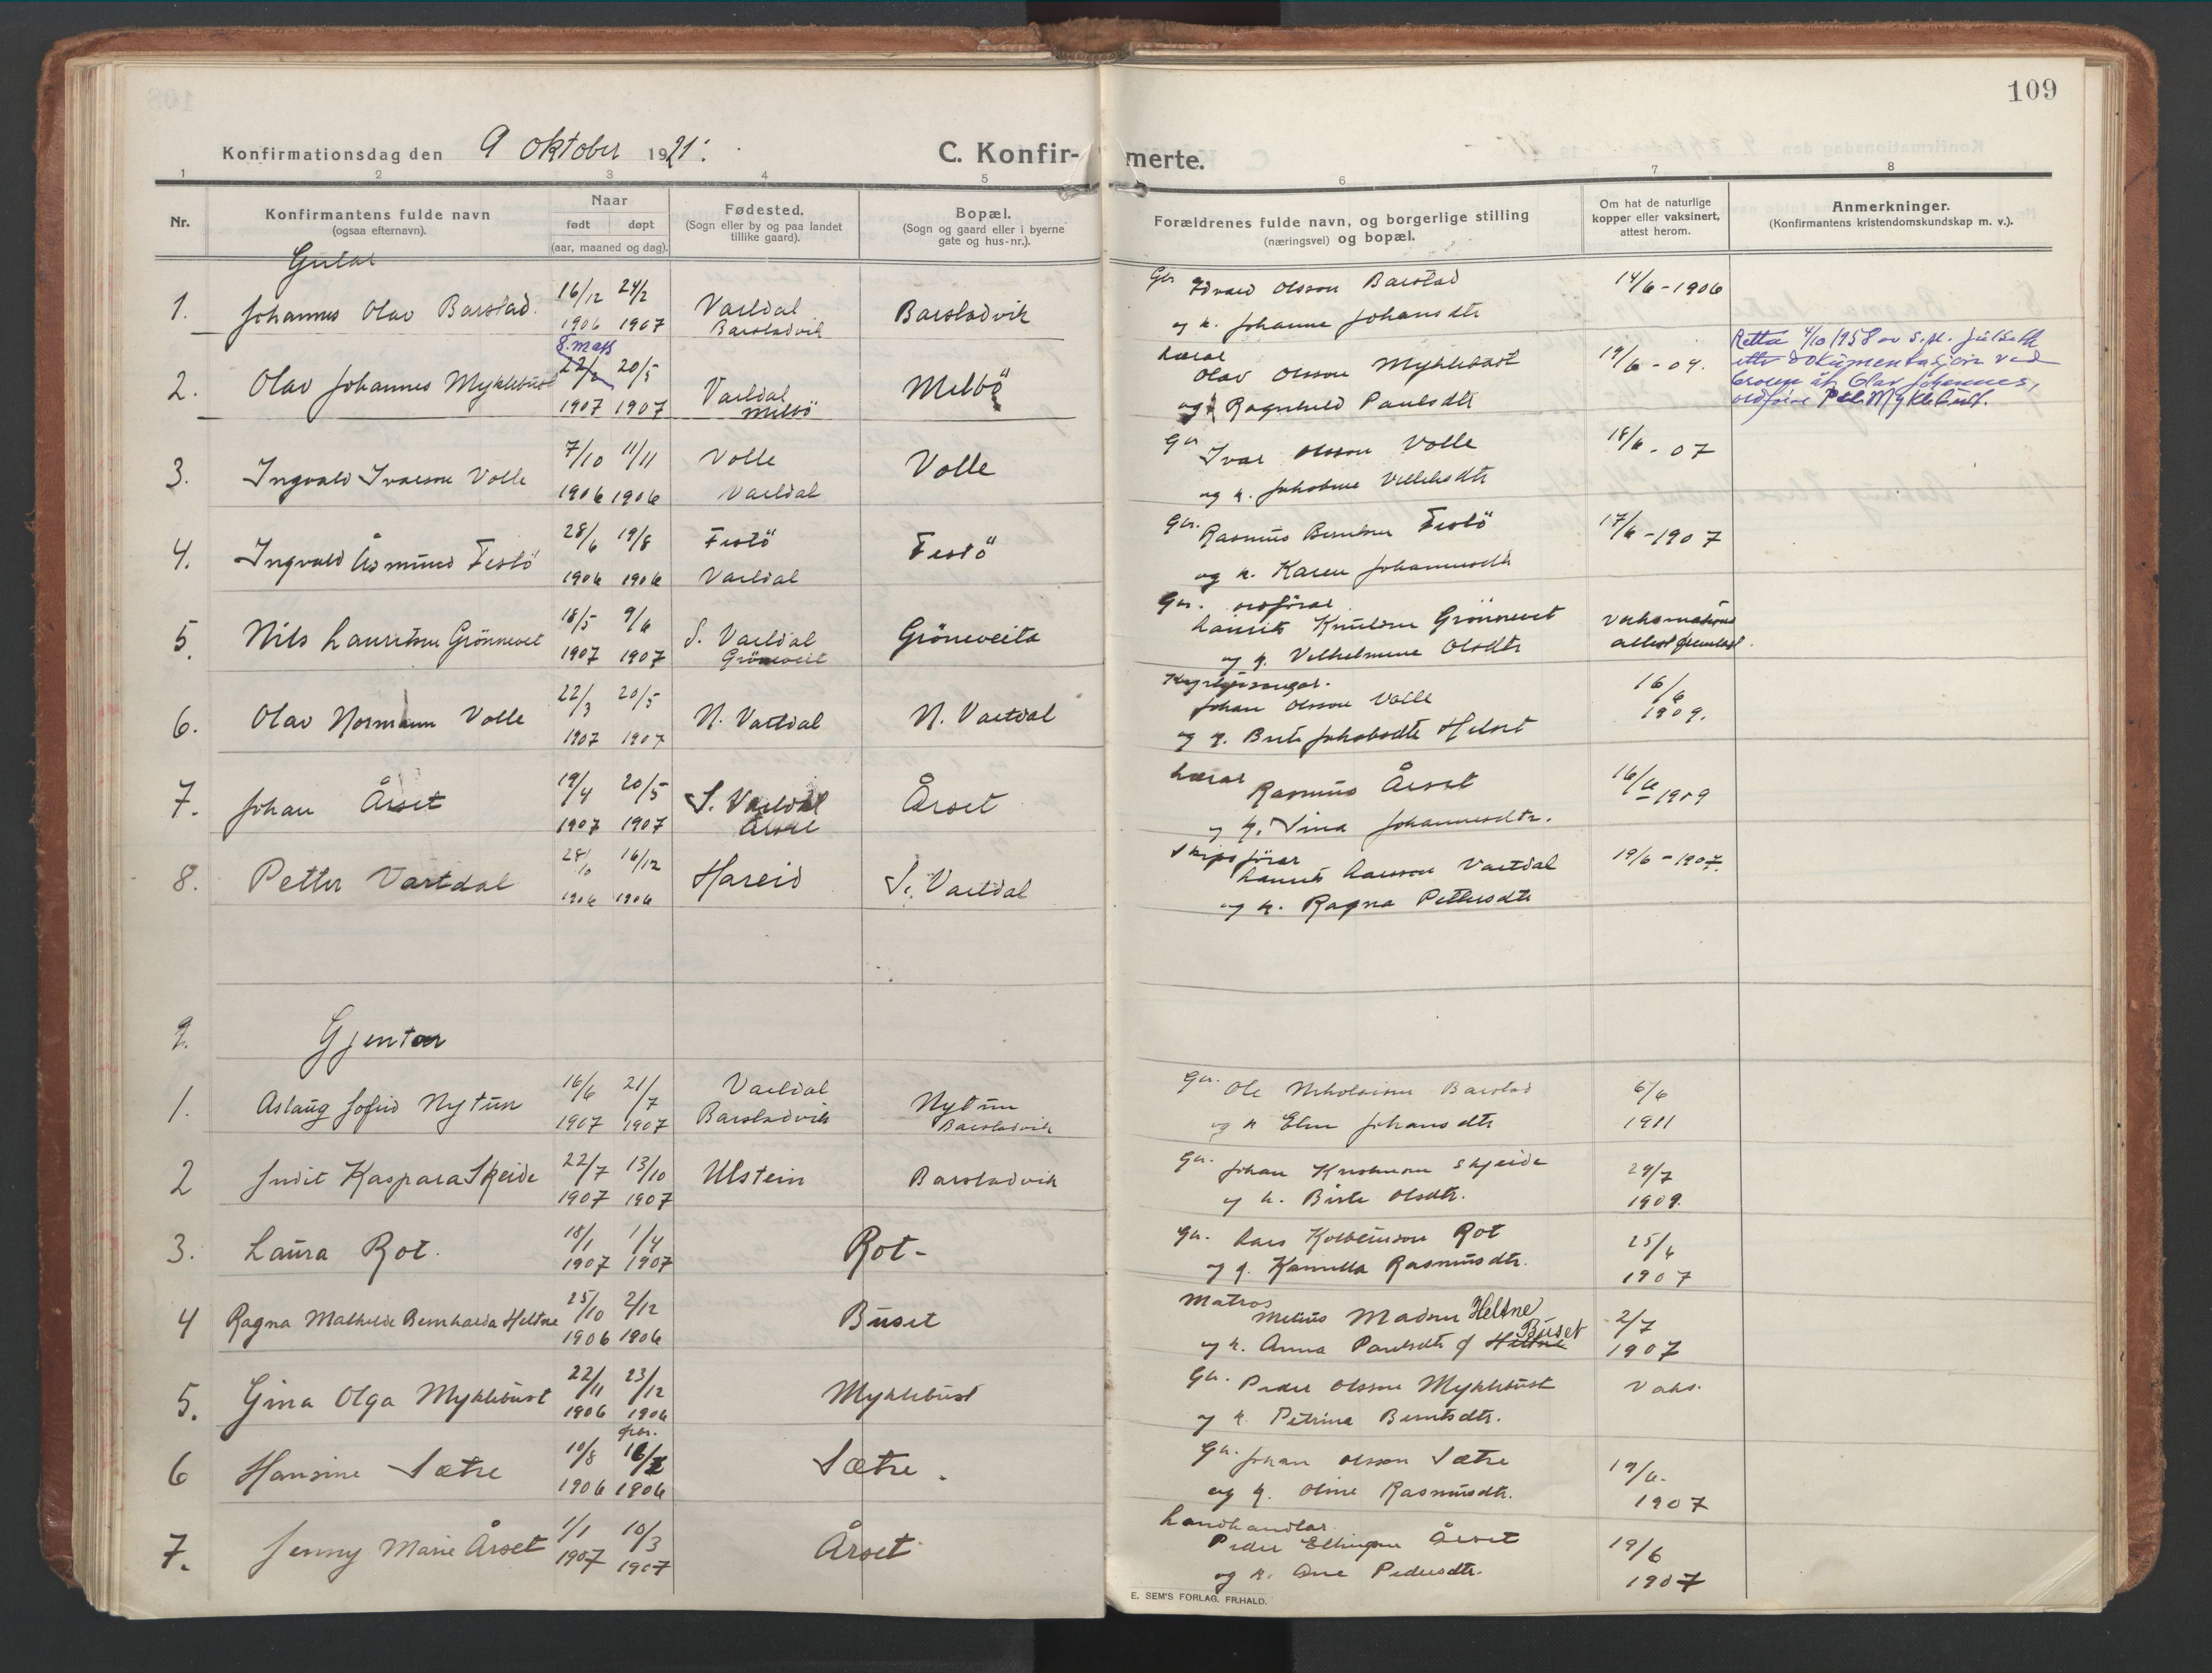 109
Konfirmationsdag den 9 oktober 1921.
C. Konfirmerte.
1 2 3 4 5 6 7 8
Nr.
Konfirmantens fulde navn
(ogsaa efternavn).
Naar
født døpt
(aar, maaned og dag).
Fødested.
(Sogn eller by og paa landet
tillike gaard).
Bopæl.
(Sogn og gaard eller i byerne
gate og hus-nr.).
Forældrenes fulde navn, og borgerlige stilling
(næringsvei) og bopæl.
Om hat de naturlige
kopper eller vaksinert,
attest herom.
Anmerkninger.
(Konfirmantens kristendomskundskap m. v.).
Gutar
1. Johannes Olav Barstad. 16/12 24/2 Vartdal Barstadvik Gbr Edvard Olsson Barstad 14/6-1906
1906 1907 Barstadvik og k. Johanne Johansdtr
8. mars
2. Olav Johannes Myklebust 22/2 20/5 Vartdal Melbö Lærar Olav Olsson Myklebust 19/6-09.
1907 1907 Melbö og k Ragnhild Paulsdtr
Retta 4/10 1958 av S.pr.
etter dokumentasjon ved
broren åt Olav Johannes,
ordførar Peter Myklebust.
3. Ingvald Ivarson Volle 7/10 11/11 Volle Volle Gbr Ivar Olsson Volle 18/6-07
1906 1906 Vartdal og k. Jakobine
4. Ingvald Åsmund Festö 28/6 19/8 Festö Festö Gbr. Rasmus Berntson Festö 17/6-1907
1906 1906 Vartdal og k. Karen Johannesdtr
5. Nils Lauritson Grönnevet 18/5 9/6 S. Vartdal Gröneveita Gbr. ordförar Vaksinations
1907 1907 Gröneveit Laurits Knutson Grönnevet attest fremlagt.
og k. Vilhelmine Olsdtr
6. Olav Normann Volle 22/3 20/5 N. Vartdal N. Vartdal Kyrkjesongar. 16/6
1907 1907 Johan Olsson Volle 1909.
og k. Brite Jakobsdtr
7. Johan Årset 19/4 20/5 S. Vartdal Årset Lærar Rasmus Årset 16/6-1909
1907 1907 Årset og k. Sina Johannesdtr.
8. Petter Vartdal 28/10 16/12 Hareid S. Vartdal Skipsförar 19/6-1907.
1906 1906 Laurits Larsson Vartdal
og k. Ragna Pettersdtr
9. Gjentor
1. Aslaug Jofrid Nytun 16/6 21/7 Vartdal Nytun Gbr. Ole Nikolaison Barstad 6/6
1907 1907 Barstadvik Barstadvik og k Eline Johansdtr 1911
2 Judit Kaspara Skeide 22/7 13/10 Ulstein Barstadvik Gbr. Johan Skjeide 29/7
1907 1907 og k. Birte Olsdtr. 1909.
3. Laura Rot. 18/1 1/4 Rot- Gbr. Lars Kolbeinson Rot 25/6
1907 1907 og k. Kamilla Rasmusdtr. 1907
4 Ragna Mathilde Bernharda Heltne 25/10 2/12 Buset Matros Melius Madsen Heltne 2/7
Buset
1906 1906 og k. Anna Paulsdtr f Heltne 1907
5. Gina Olga Myklebust 22/11 23/12 Myklebust Gbr. Peder Olsson Myklebust Vaks.
1906 1906 og k. Petrina Berntsdtr.
6 Hansine Sætre 10/8 16/ Sætre. Gbr. Johan Olsson Sætre 19/6.
1906 1906 og k. Oline Rasmusdtr. 1907
7. Jenny Marie Årset 1/1 10/3 Årset Landhandlar. 19/6
1907 1907 Peder Ellingson Årset 1907
og k. Ane Pedersdtr.
E. SEM'S FORLAG. FR.HALD.